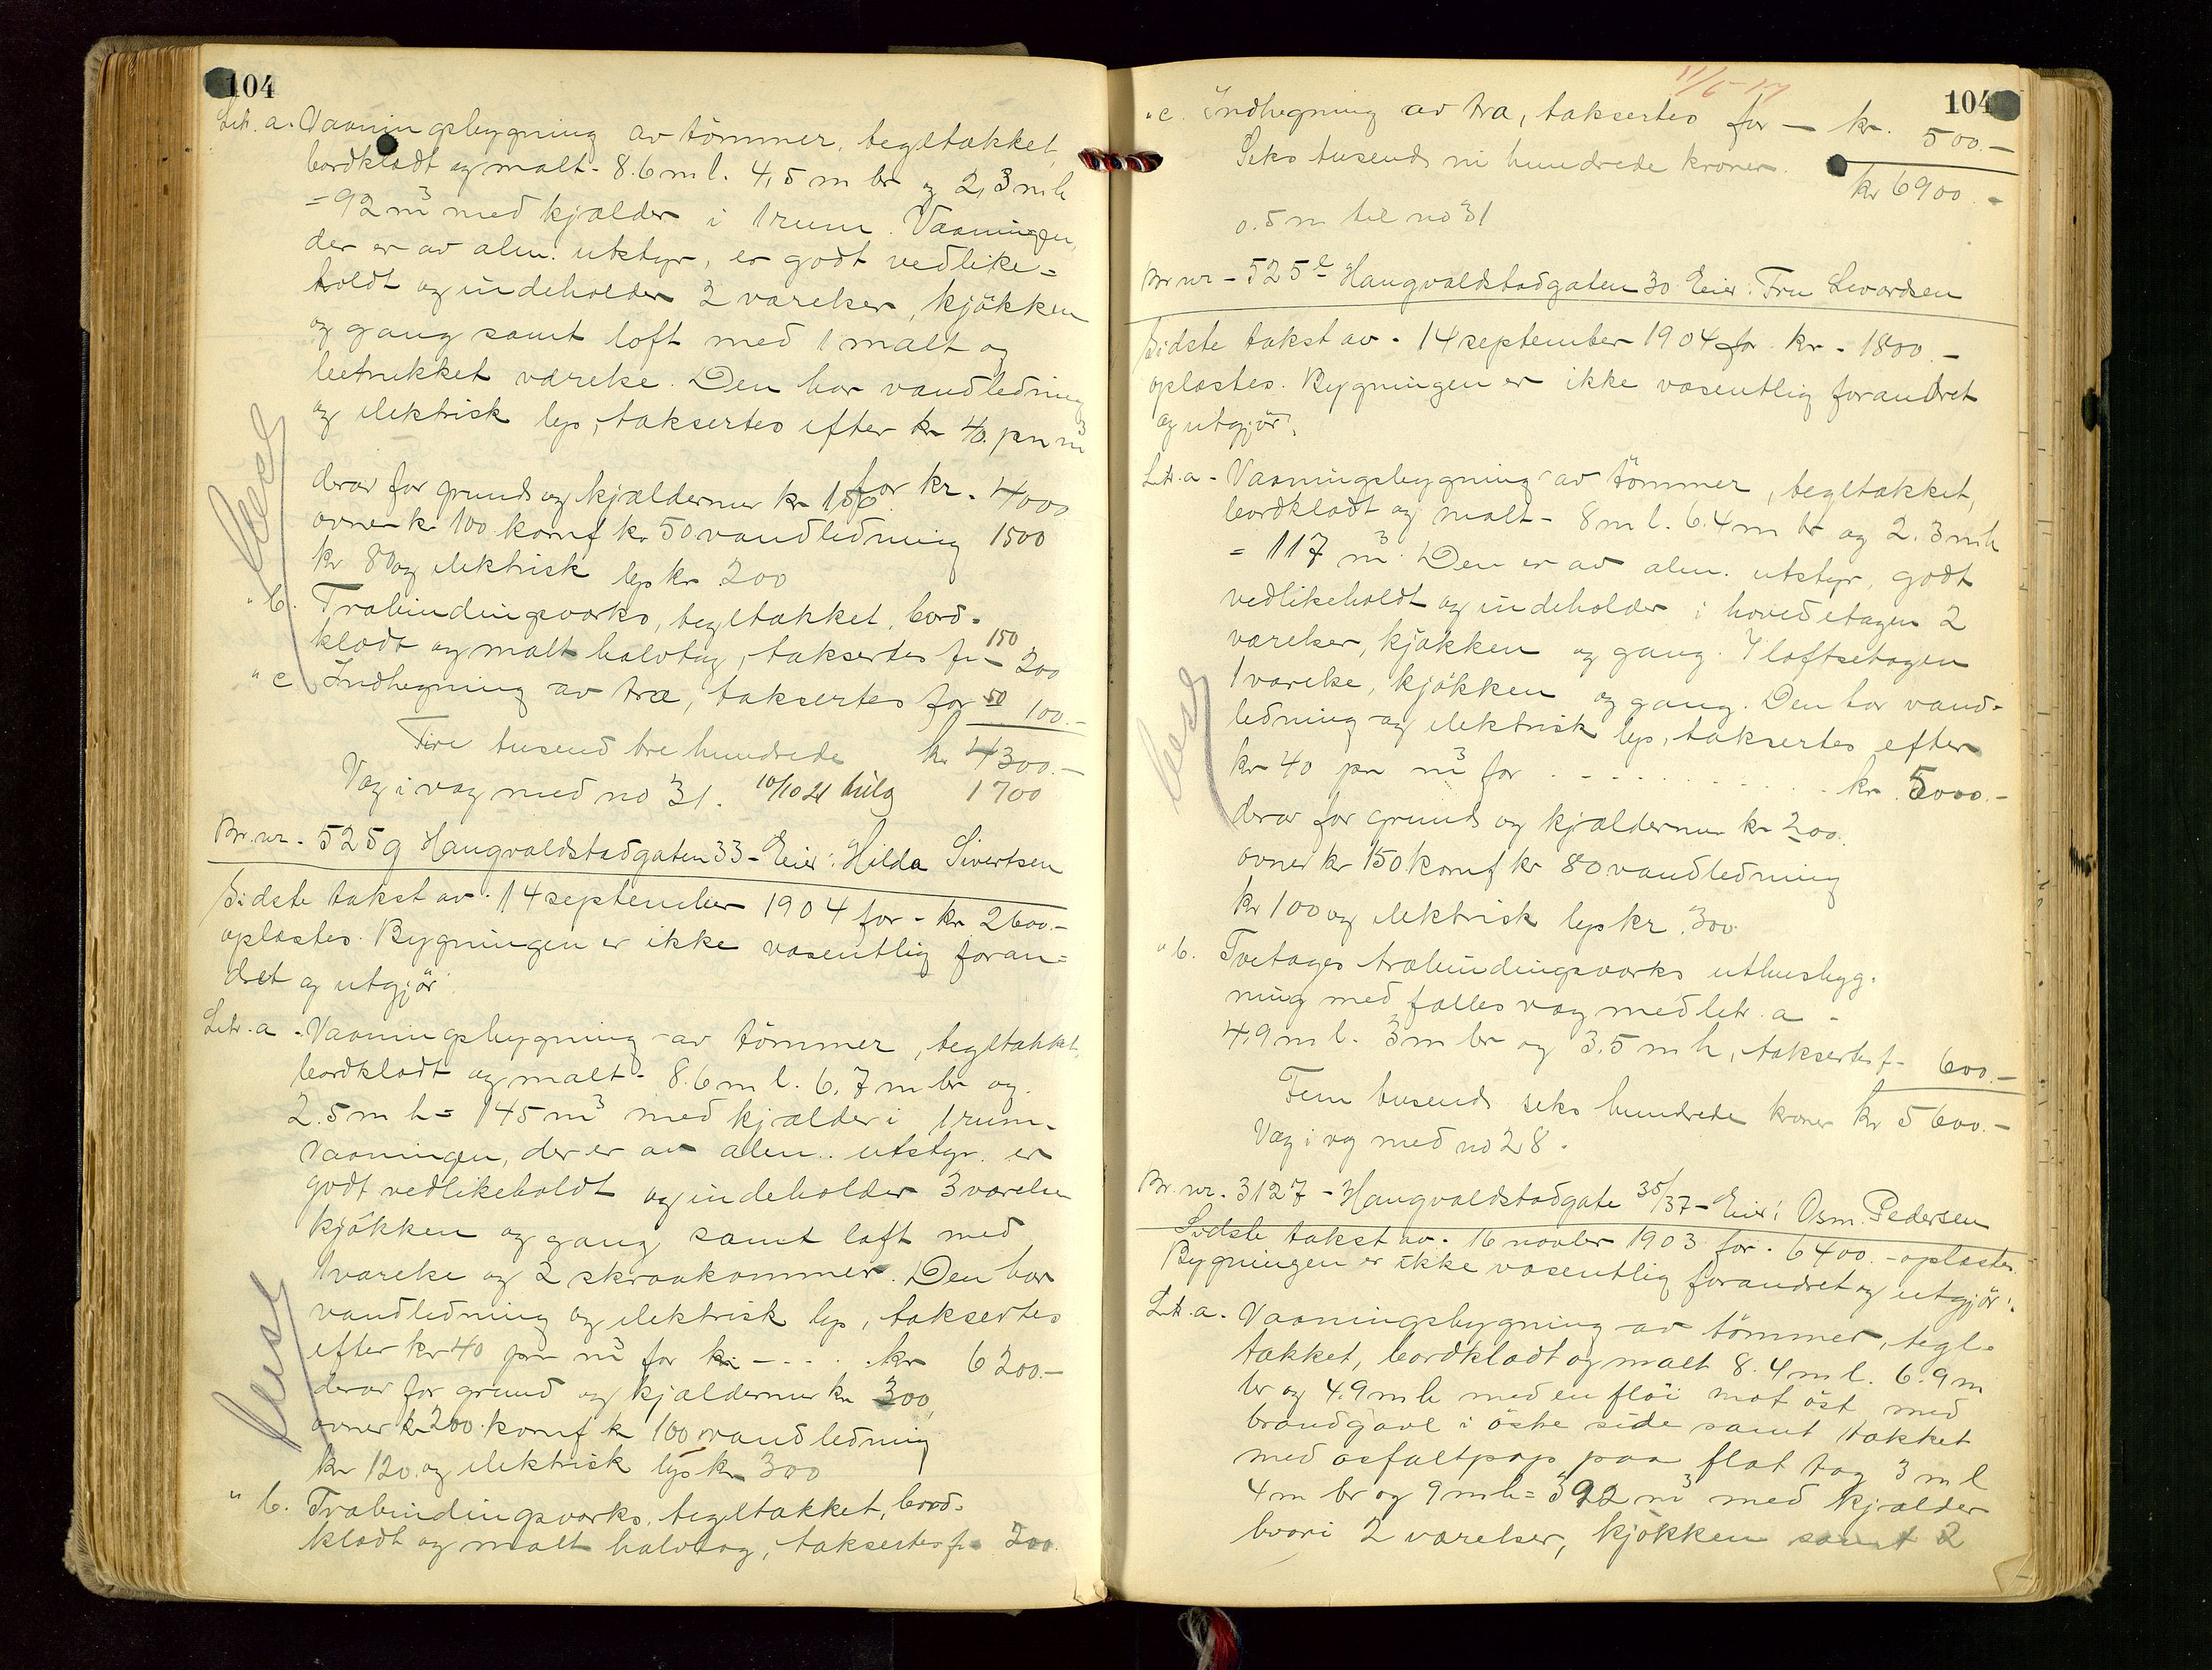 104
Litr. a. Vaaningsbygning av tömmer, tegltækket,
bordklædt og malt - 8.6 m l. 4,5 m br og 2,3 m h
= 92 m³ med kjælder i 1 rum. Vaaningen,
der er av alm. utstyr, er godt vedlike=
holdt og indeholder 2 værelser, kjökken
og gang samt loft med 1 malt og
betrukket værelse. Den har vandledning
og elektrisk lys, taksertes efter kr 40. pr m³
for kr. 4000
derav for grund og kjældermur kr 150.
ovner kr 100 komf kr 50 vandledning 1500
kr 80 og elektrisk lys kr 200
" b. Træbindingsværks, tegltækket, bord-
150
klædt og malt halvtag, taksertes fr - 200
" c Indhegning av træ, taksertes for 50 100.-
Fire tusend tre hundrede kr 4300.-
Væg i væg med no 31. 10/10 21 1700
Br. nr. 525g Haugvaldstadgaten 33 - Eier: Hilda Sivertsen
Sidste takst av 14 september 1904 for - kr 2600.-
oplæstes. Bygningen er ikke væsentlig foran=
dret og utgjör:
Litr. a - Vaaningsbygning av tömmer, tegltækket,
bordklædt og malt - 8.6 m l. 6,7 m br og
2.5 m h = 145 m³ med kjælder i 1 rum.
Vaaningen, der er av alm. utstyr er
godt vedlikeholdt og indeholder 3 værelser
kjökken og gang samt loft med
1 værelse og 2 skraakammer. Den har
vandledning og elektrisk lys, taksertes
efter kr 40 pr m³ for kr - - - . . kr 6200.-
derav for grund og kjældermur kr 300,
ovner kr 200. komf kr 100 vandledning
kr 120. og elektrisk lys kr 300
" b. Træbindingsværks, tegltækket, bord-
klædt og malt halvtag, taksertes fr 200.
104
" c. Indhegning av træ, taksertes for - kr. 500.-
Seks tusend ni hundrede kroner. kr 6900.-
0.5 m til no 31
Br nr - 525e Haugvaldstadgaten 30 Eier: Fru Sivardsen
Sidste takst av - 14 september 1904 for kr - 1800.-
oplæstes. Bygningen er ikke væsentlig forandret
og utgjör:
Litr. a - Vaaningsbygning av tömmer, tegltækket,
bordklædt og malt - 8 m l. 6.4 m br og 2.3 m h
= 117 m³. Den er av alm. utstyr, godt
vedlikeholdt og indeholder i hovedetagen 2
værelser, kjökken og gang. I loftsetagen
1 værelse, kjökken og gang. Den har vand-
ledning og elektrisk lys, taksertes efter
kr 40 pr m³ for . . . . . . . . . kr 5000.-
derav for grund og kjældermur kr 200.
ovner kr 150 komf kr 80 vandledning
kr 100 og elektrisk lys kr. 300
" b. Toetages træbindingsværks uthusbyg-
ning med fælles væg med litr. a -
4,9 m l. 3 m br og 3.5 m h, taksertes f - 600.-
Fem tusend seks hundrede kroner kr 5600.-
Væg i væg med no 28.
Br. nr. 3127 - Haugvaldstadgate 35/37 - Eier: Osm. Pedersen
Sidste takst av. 16 novber 1903 for - 6400. - oplæstes.
Bygningen er ikke væsentlig forandret og utgjör:
Litr. a. Vaaningsbygning av tömmer, tegl-
tækket, bordklædt og malt 8.4 m l. 6.9 m
br og 4.9 m h med en flöi mot öst med
brandgavl i östre side samt tækket
med asfaltpap paa flat tag 3 m l
4 m br og 9 m h = 392 m³ med kjælder
hvori 2 værelser, kjökken samt 2